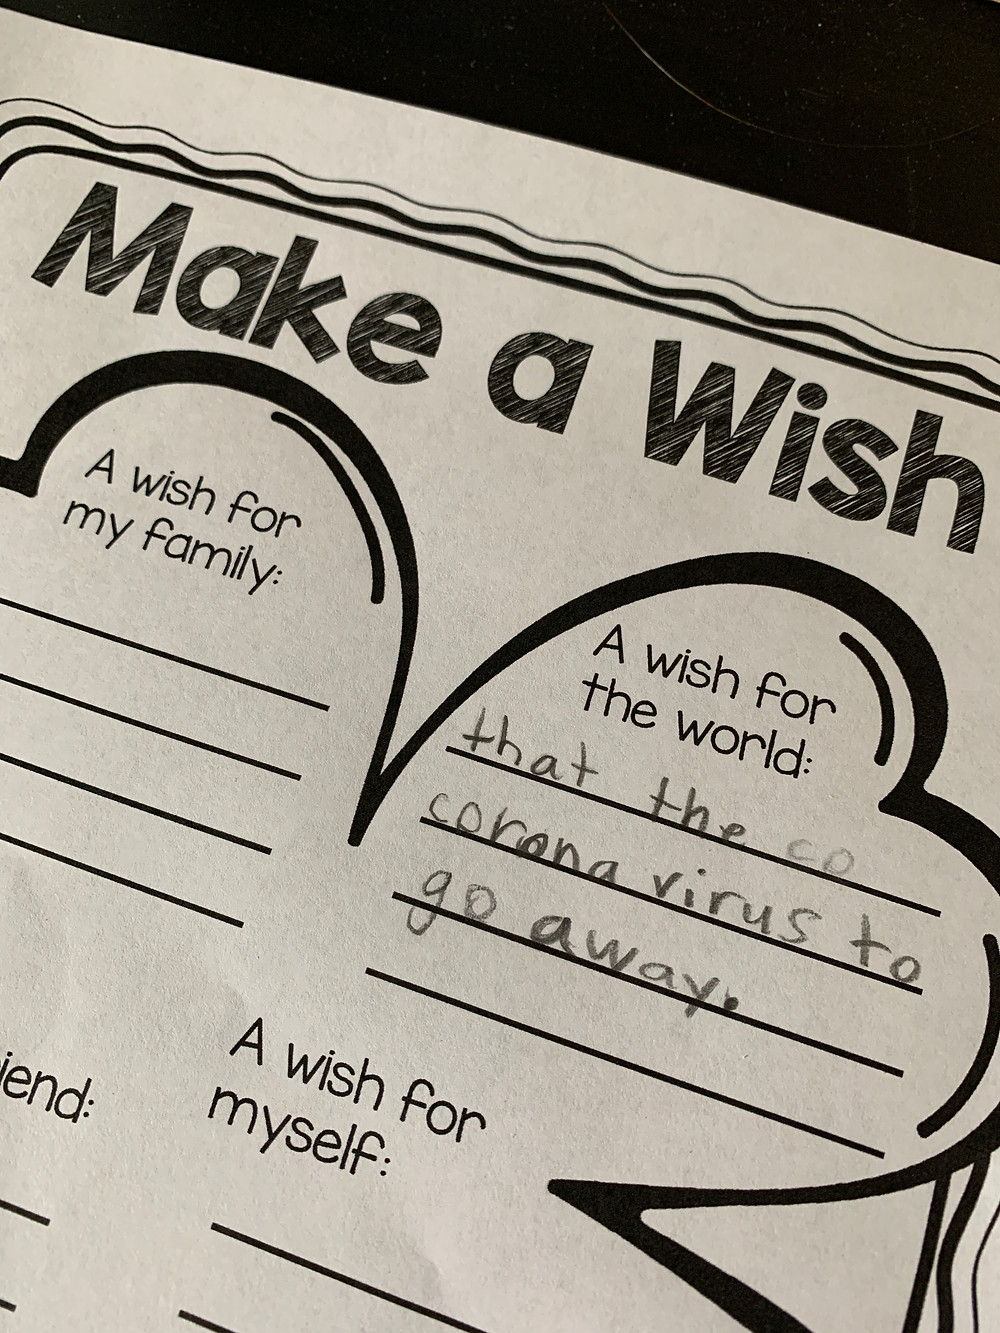 Make a Wish
A wish for
my family:
A wish for
the world:
that the co
corona virus to
go away.
iend:
A wish for
myself: